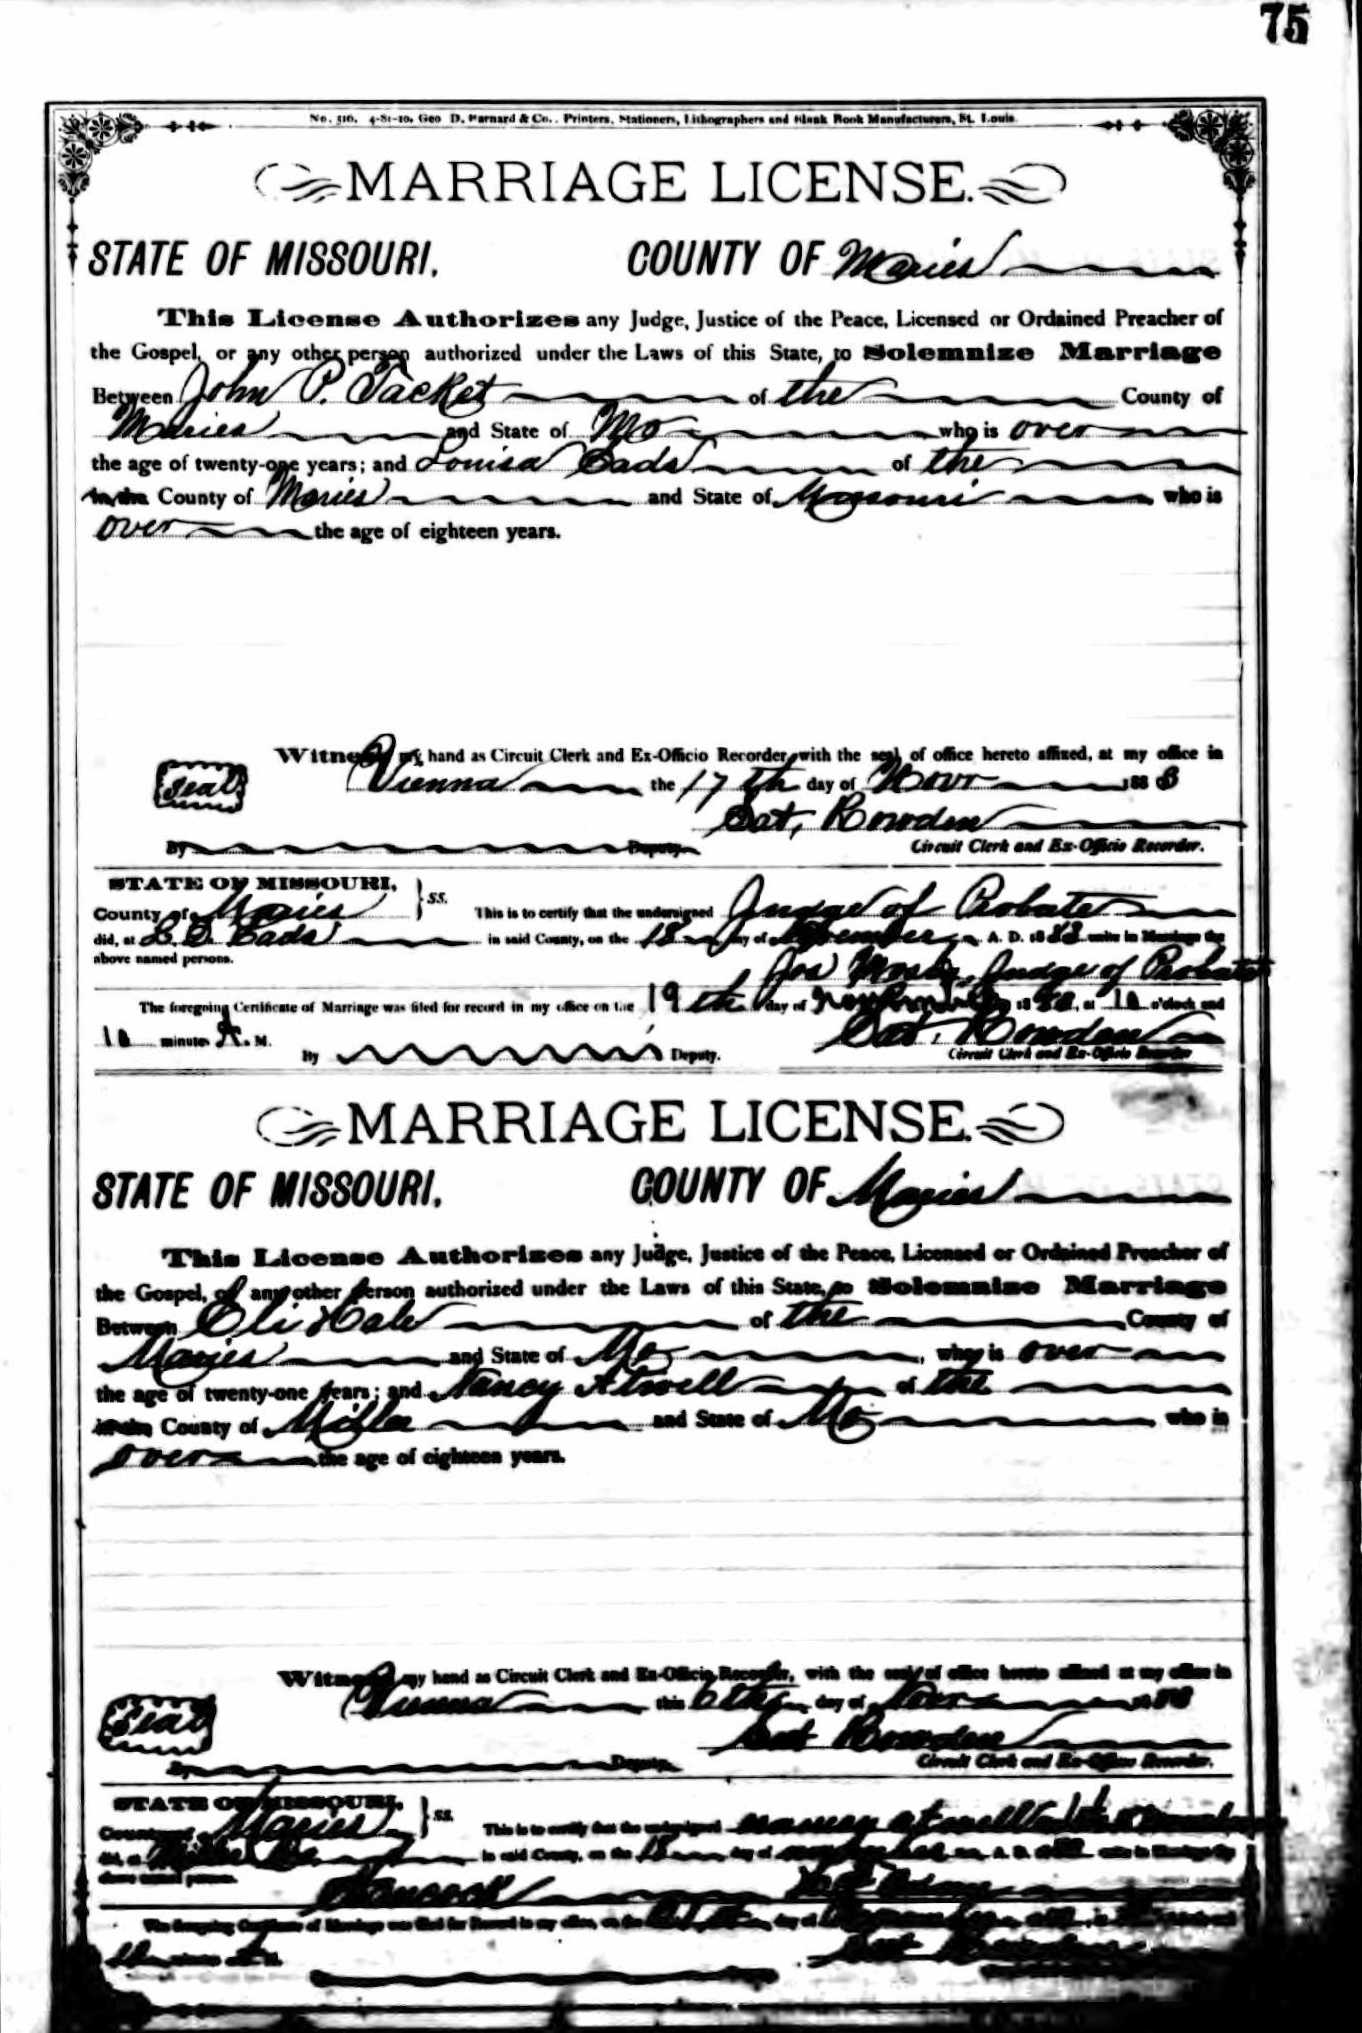 75
No. 516, 4-81-10, Geo D. Barnard & Co., Printers, Stationers, Lithographers and Blank Book Manufacturers, St. Louis.
MARRIAGE LICENSE.
STATE OF MISSOURI, COUNTY OF Maries
This License Authorizes any Judge, Justice of the Peace, Licensed or Ordained Preacher of
the Gospel, or any other person authorized under the Laws of this State, to Solemnize Marriage
Between John P. Tacket of the County of
Maries and State of Mo who is over
the age of twenty-one years; and Louisa Eads of the
in the County of Maries and State of Missouri who is
over the age of eighteen years.
Witness my hand as Circuit Clerk and Ex-Officio Recorder, with the seal of office hereto affixed, at my office in
Seal Vienna the 17th day of Novr 1883
Sat. Rowden
By Deputy. Circuit Clerk and Ex-Officio Recorder.
STATE OF MISSOURI,
County of Maries } SS. This is to certify that the undersigned Judge of Probate
did, at L. D. Eads in said County, on the 18 day of November A. D. 1883 unite in Marriage the
above named persons. Jos Judge of Probate
The foregoing Certificate of Marriage was filed for record in my office on the 19th day of November at 10 o'clock and
10 minutes A. M. Sat. Rowden
By Deputy. Circuit Clerk and Ex-Officio Recorder
MARRIAGE LICENSE.
STATE OF MISSOURI, COUNTY OF Maries
This License Authorizes any Judge, Justice of the Peace, Licensed or Ordained Preacher of
the Gospel, or any other person authorized under the Laws of this State, to Solemnize Marriage
Between Eli Hale of the County of
Maries and State of Mo, who is over
the age of twenty-one years; and Nancy Atwell of the
in the County of Miller and State of Mo who is
over the age of eighteen years.
Witness my hand as Circuit Clerk and Ex-Officio Recorder, with the seal of office hereto affixed at my office in
Seal Vienna this 6th day of Novr
Sat Rowden
By Deputy. Circuit Clerk and Ex-Officio Recorder.
STATE OF MISSOURI,
County of Maries } SS. This is to certify that the undersigned Nancy Atwell
did, at in said County, on the 18 day of A. D. unite in Marriage the
above named persons. Hancock
The foregoing Certificate of Marriage was filed for Record in my office, on the day of
minutes
Sat Rowden